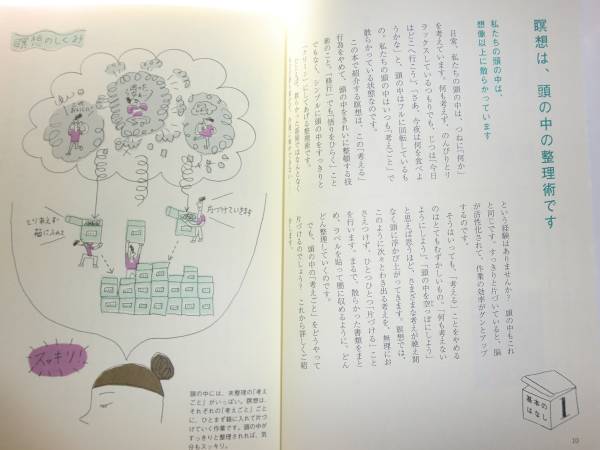 瞑想は、頭の中の整理術です
私たちの頭の中は、
想像以上に散らかっています
日常、私たちの頭の中は、つねに「何か」
を考えています。何も考えず、のんびりとリ
ラックスしているつもりでも、じつは「今日
はどこへ行こう」「さあ、今夜は何を食べよ
うかな」と、頭の中はフルに回転しているも
の。私たちの頭の中はいつも「考えごと」で
散らかっている状態なのです。
この本で紹介する瞑想は、この「考える」
行為をやめて、頭の中をきれいに整頓する技
術のこと。「修行」でも「悟りをひらく」こと
でもなく、シンプルに頭の中をすっきりと
という経験はありませんか？ 頭の中もこれ
と同じです。すっきりと片づいていると、脳
が活性化されて、作業の効率がグンとアップ
するのです。
そうはいっても、「考える」ことをやめる
のはとてもむずかしいもの。「何も考えない
ようにしよう」、「頭の中を空っぽにしよう」
と思えば思うほど、さまざまな考えが絶え間
なく頭に浮かび上がってきます。瞑想では、
このように次々とわき出る考えを、無理にお
さえつけず、ひとつひとつ「片づける」こと
を行います。まるで、散らかった書類をまと
め、ラベルを貼って箱に収めるように、どん
どん整理していくのです。
でも、頭の中の「考えごと」をどうやって
片づけるのでしょう？ これから詳しくご紹
介します。
基本の
はなし
1
10
瞑想のしくみ
とりあえず
箱に入れて
片づけていきます
スッキリ！
頭の中には、未整理の「考え
ごと」がいっぱい。瞑想は、
それぞれの「考えごと」ごと
に、ひとまず箱に入れて片づ
けていく作業です。頭の中が
すっきりと整理されれば、気
分もスッキリ。